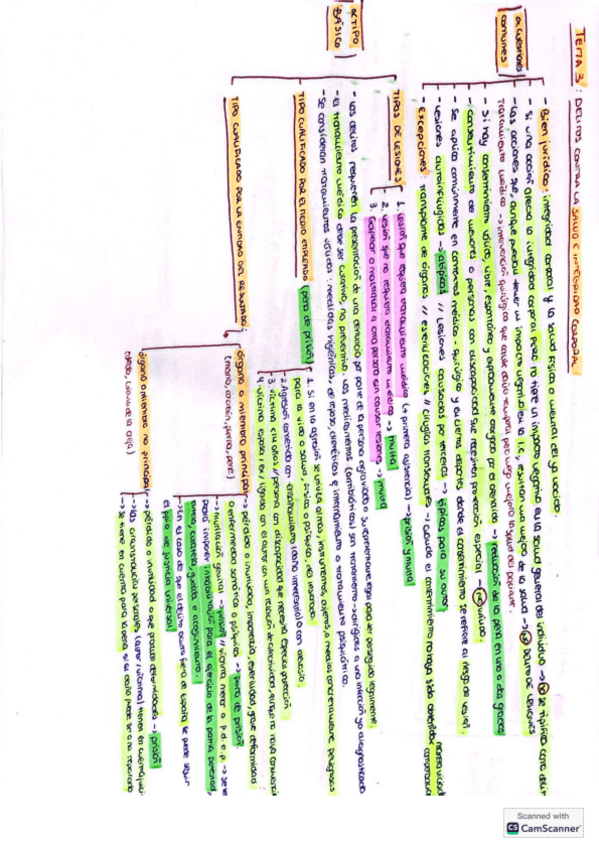 TEMA 3: DELITOS CONTRA LA SALUD E INTEGRIDAD CORPORAL
CUESTIONES
COMUNES
- Bien jurídico: integridad corporal y la salud física o mental del ya nacido.
- Si una acción afecta la integridad corporal pero no tiene un impacto negativo en la salud general del individuo → no se tipifica como delito
- Las acciones que aunque puedan tener un impacto negativo en la I.C, resultan una mejora de la salud → no delito de lesiones
Tratamiento médico → intervención quirúrgica que causa daño temporal pero luego mejora la salud del paciente.
- Si hay consentimiento válido, libre, espontáneo y expresamente otorgado por el ofendido → reducción de la pena en uno o dos grados
- Consentimiento de menores o personas con discapacidad que necesita protección especial → no válido
- Se aplica comúnmente en contextos médico-quirúrgico y en ciertos deportes donde el consentimiento se refiere al riesgo de lesión.
- Lesiones autoinfligidas → atípicas // Lesiones causadas por terceros → típicas para su autor
- Excepciones: transplante de órganos // esterilizaciones // cirugías transexuales → cuando el consentimiento no haya sido obtenido
TIPO
BÁSICO
TIPOS DE LESIONES
1. Lesión que requiera tratamiento médico (+ primera asistencia) → prisión y multa
2. Lesión que no requiera tratamiento médico → multa
3. Golpear o maltratar a otra persona sin causar lesiones → multa
- Los delitos requieren la presentación de una denuncia por parte de la persona agraviada o su representante legal para ser perseguido legalmente.
- El tratamiento médico debe ser curativo, no preventivo. Los medicamentos (antibióticos) son tratamiento → dirigidos a una infección ya diagnosticada
- Se consideran tratamientos válidos: medidas higiénicas, de reposo, dietéticas e internamiento o tratamiento psiquiátrico.
TIPO CUALIFICADO POR EL MEDIO EMPLEADO
(pena de prisión)
1. Si en la agresión se utiliza armas, instrumentos, objetos, o medios concretamente peligrosos
para la vida o salud, física o psíquica, del lesionado.
2. Agresión cometida con ensañamiento (daño innecesario) o con alevosía.
3. Víctima <14 años // persona con discapacidad que necesita especial protección
4. Víctima esposa / ex / ligada con el autor en una relación de afectividad, aunque no haya convivencia
TIPO CUALIFICADO POR LA ENTIDAD DEL RESULTADO:
órgano o miembro principal
(mano, corazón, pierna, pene)
→ pérdida o inutilidad, impotencia, esterilidad, grave deformidad
o enfermedad somática o psíquica → pena de prisión
→ mutilación genital → prisión // víctima menor o p.d.e.p. → se le
podrá imponer inhabilitación para el ejercicio de la patria potestad,
tutela, curatela, guarda o acogimiento
↳ En el caso de que el delito ocurra fuera de España se puede seguir
el tipo de justicia universal
órgano o miembro no principal
(dedo, lóbulo de la oreja)
→ pérdida o inutilidad o que provoca deformidades → prisión
→ Las circunstancias personales (autor/víctima) tienen en cuenta
→ Se tiene en cuenta para la pena si el daño puede ser o no reparado
Scanned with
CS CamScanner